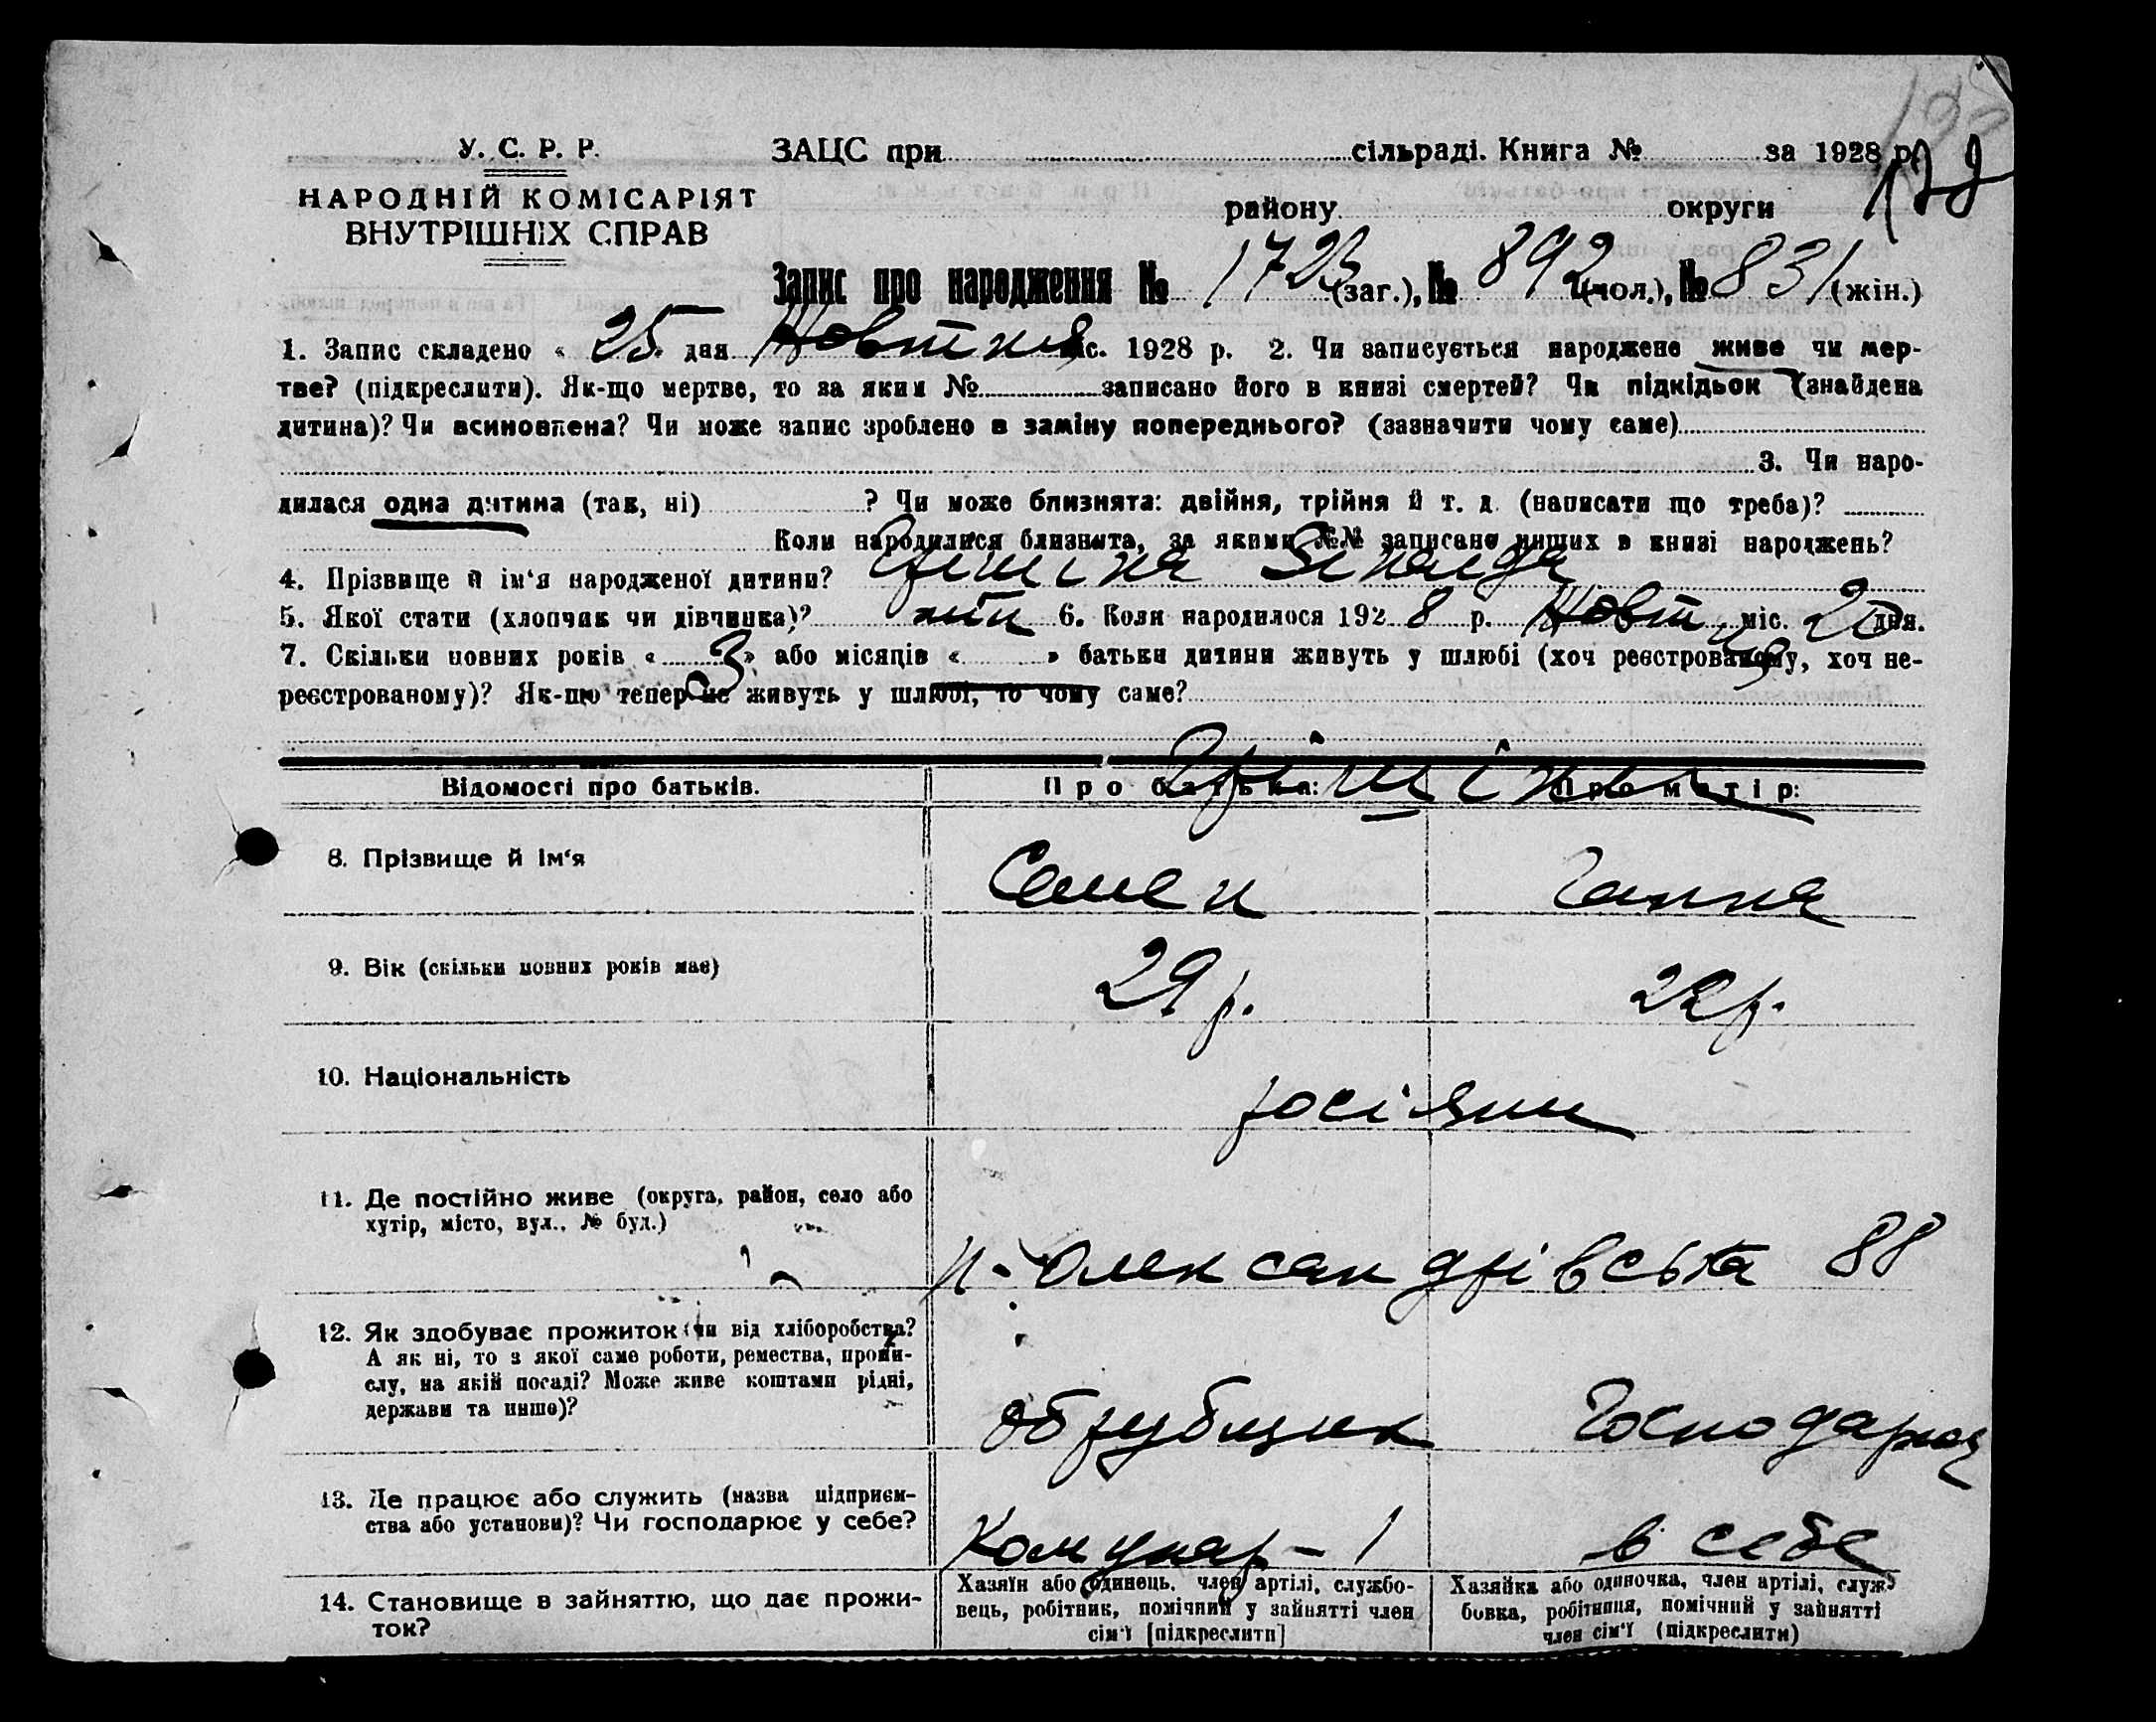 У. С. Р. Р.
НАРОДНІЙ КОМІСАРІЯТ
ВНУТРІШНІХ СПРАВ
ЗАЦС при сільраді. Книга № за 1928 р.
району округи
Запис про народження № 1723 (заг.), № 892 (чол.), № 831 (жін.)
1. Запис складено « 25 » дня Жовтня міс. 1928 р. 2. Чи записується народжене живе чи мер-
тве? (підкреслити). Як-що мертве, то за яким № записано його в книзі смертей? Чи підкідьок (знайдена
дитина)? Чи всиновлена? Чи може запис зроблено в заміну попереднього? (зазначити чому саме)
3. Чи наро-
дилася одна дитина (так, ні) ? Чи може близнята: двійня, трійня й т. д. (написати що треба)?
Коли народилися близнята, за якими №№ записано инших в книзі народжень?
4. Прізвище й ім'я народженої дитини? Грішіна Зінаида
5. Якої стати (хлопчик чи дівчинка)? 6. Коли народилося 1928 р. Жовт міс. 20 дня.
7. Скільки повних років « 3 » або місяців « » батьки дитини живуть у шлюбі (хоч реєстрованому, хоч не-
реєстрованому)? Як-що тепер не живуть у шлюбі, то чому саме?
Відомості про батьків. Про батька: Про матір:
Грішіни
8. Прізвище й ім'я Семен Ганна
9. Вік (скільки повних років має) 29 р. 22 р.
10. Національність росіяни
11. Де постійно живе (округа, район, село або
хутір, місто, вул., № буд.)
Н-Олександрівська 88
12. Як здобуває прожиток (чи від хліборобства?
А як ні, то з якої саме роботи, ремества, проми-
слу, на якій посаді? Може живе коштами рідні,
держави та инше)?
обрубщик Господарює
13. Де працює або служить (назва підприєм-
ства або установи)? Чи господарює у себе?
Комунар-1 в себе
14. Становище в зайняттю, що дає прожи-
ток?
Хазяїн або одинець, член артілі, службо-
вець, робітник, помічний у зайнятті член
сім'ї [підкреслити]
Хазяйка або одиночка, член артілі, служ-
бовка, робітниця, помічний у зайнятті
член сім'ї (підкреслити)